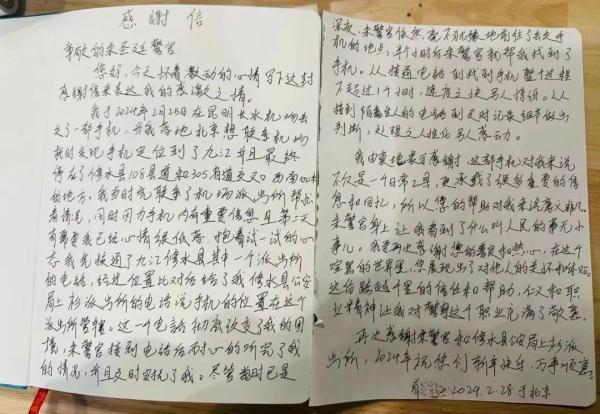 感谢信
尊敬的朱圣廷警官:
您好,今天怀着激动的心情写下这封
感谢信来表达我的感激之情。
我于2024年2月25日在昆明长水机场丢
失了一部手机,当我落地北京想联系机场
我时发现手机定位到了九江并且最终
停在了修水县106县道和305省道交叉口西南
的地方。我当时先联系了机场派出所帮忙
看情况,同时因为手机内有重要信息且第二天
有需要我已经心情很低落,抱着试一试的心
态我先拨通了九江修水县其中一个派出所
的电话,经过位置比对后给了我修水县公安
局上衫派出所的电话说手机的位置在这个
派出所管辖。这一个电话彻底改变了我的困
境,朱警官接到电话后耐心的听完了我
的情况,并且及时安抚了我。尽管当时已是
深夜,朱警官依然毫不犹豫地前往了丢失手
机的地点,半个小时后朱警官就帮我找到了
手机。从接通电话到找到手机整个过程
不超过1个小时,速度之快另人惊讶。从
接到陌生人的电话到及时记录细节做出
判断,处理之人性化另人感动。
我由衷地表示感谢,这部手机对我来说
不仅是一个日常工具,更承载了很多重要的信
息和回忆,所以您的帮助对我来说意义非凡。
朱警官身上让我看到了什么叫人民的事无小
事儿。我要再次感谢您的善良和热心,在这个
喧嚣的世界里,您展现出了对他人的关怀和体贴。
这份跨越千里的信任和帮助,仁义和职
业精神让我对警察这个职业充满了敬意。
再次感谢朱警官和修水县公安局上衫派
出所,2024年祝您们新年快乐,万事顺意!
2024.2.28于北京